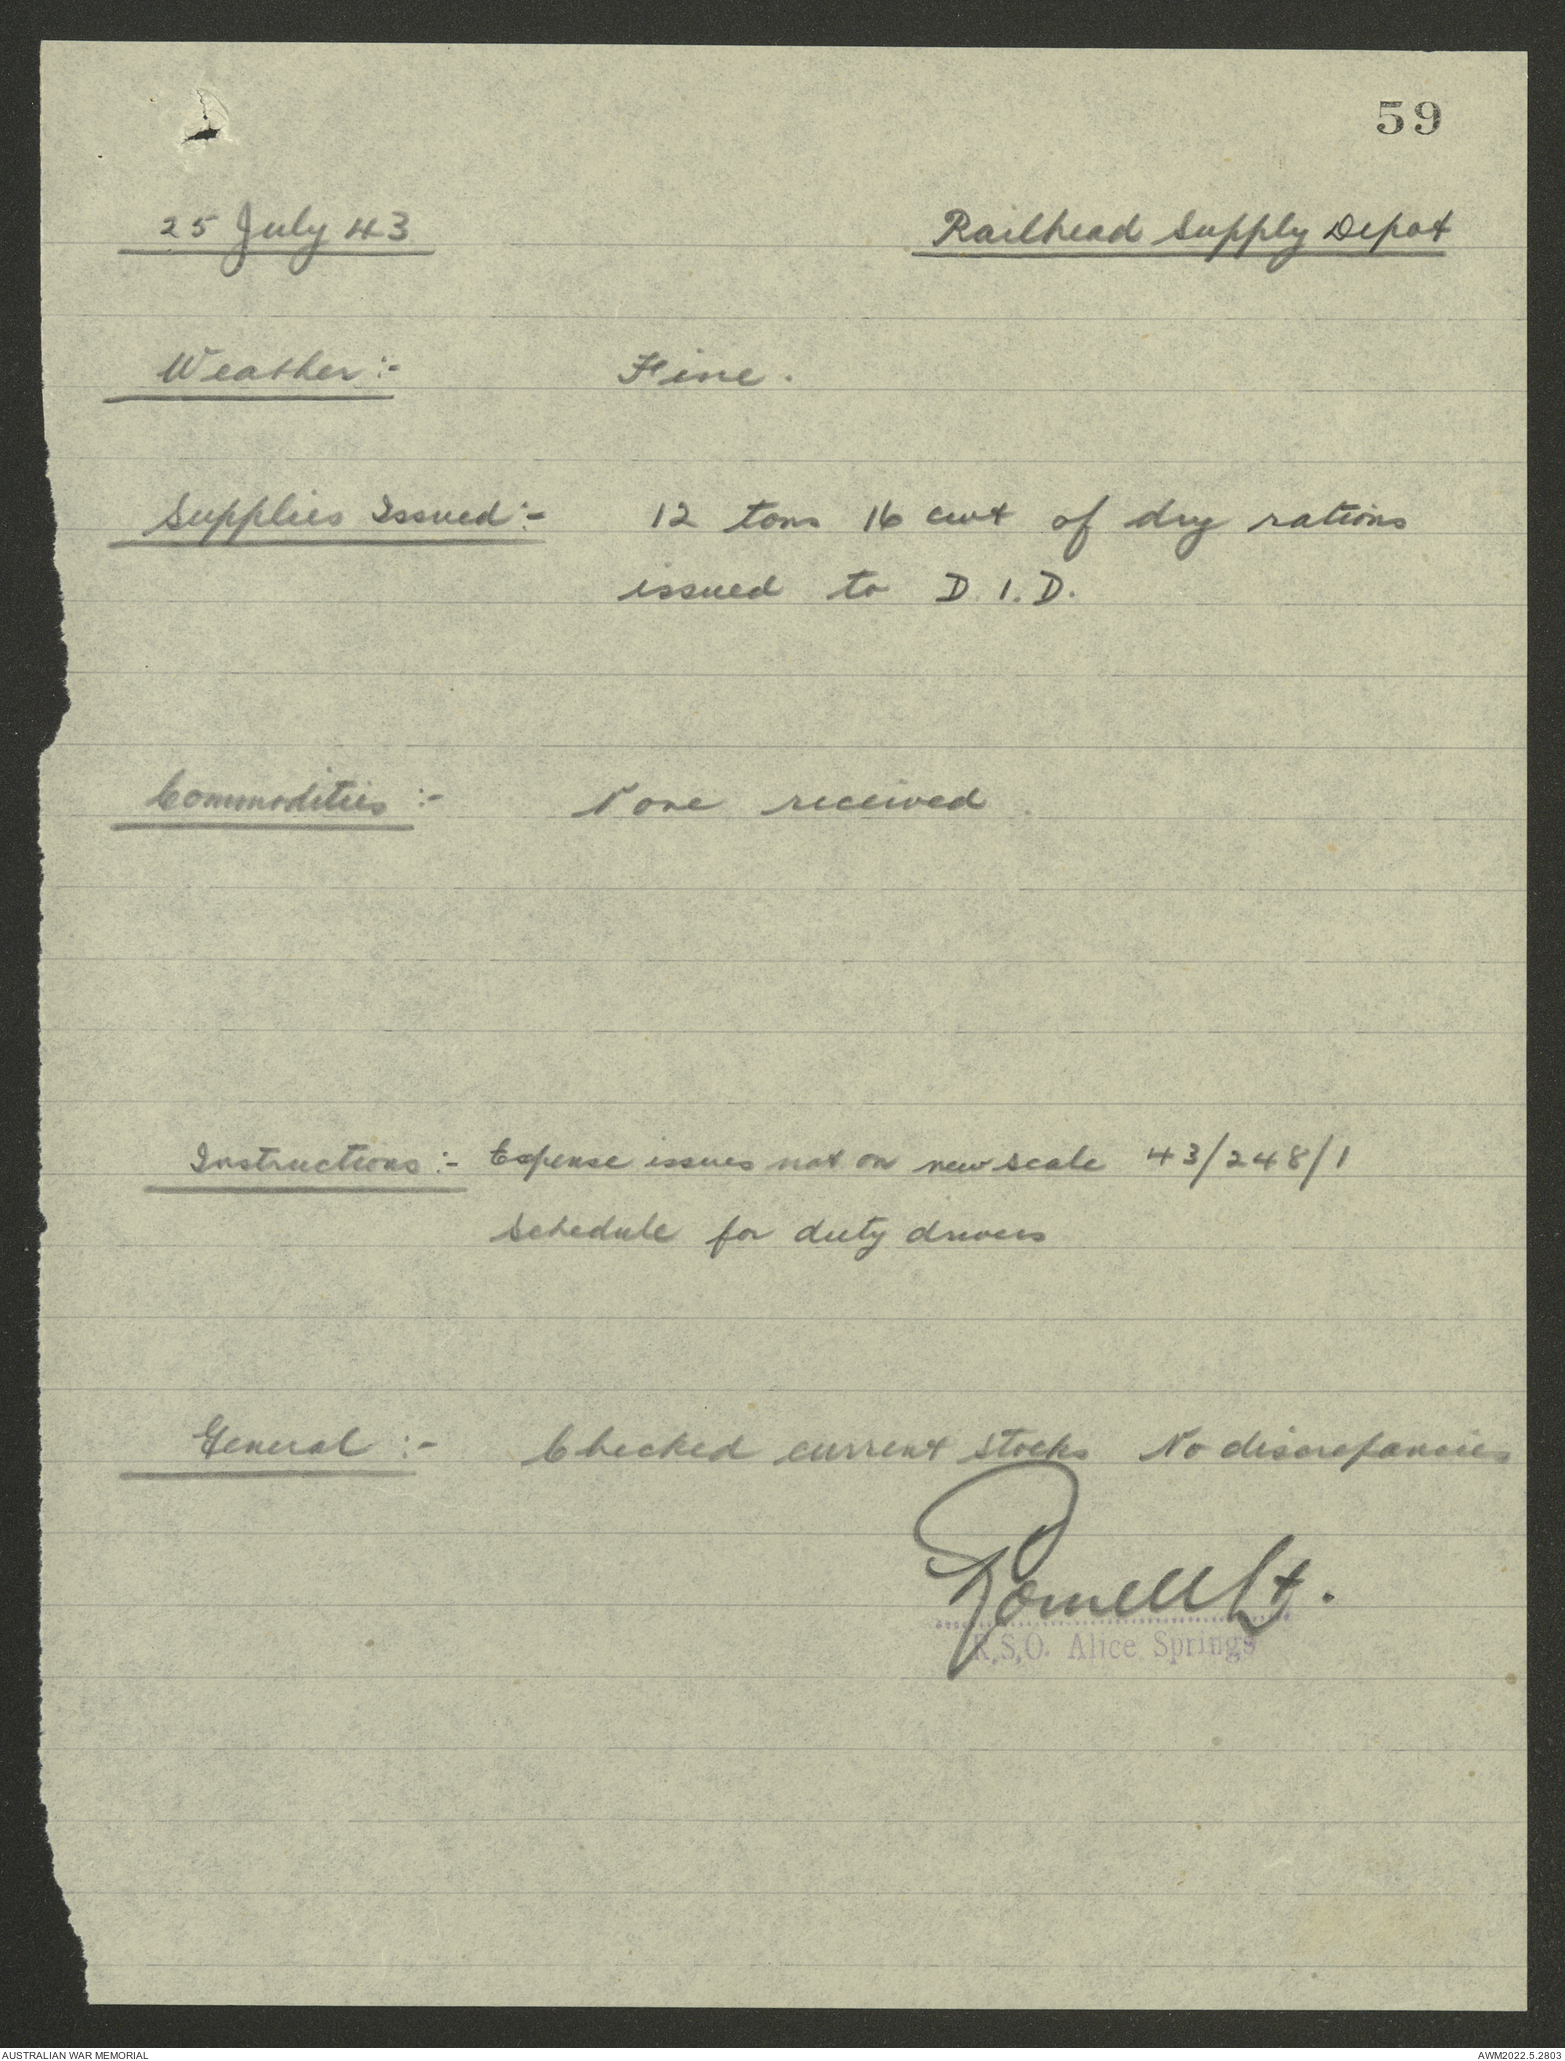 59
25 July 43 Railhead Supply Depot
Weather:- Fine.
Supplies Issued:- 12 tons 16 cwt of dry rations
issued to D.I.D.
Commodities:- None received.
Instructions:- Expense issues not on new scale 43/248/1
Schedule for duty drivers
General:- Checked current stocks No discrepancies
Lt.
R.S.O. Alice Springs
AUSTRALIAN WAR MEMORIAL AWM2022.5.2803